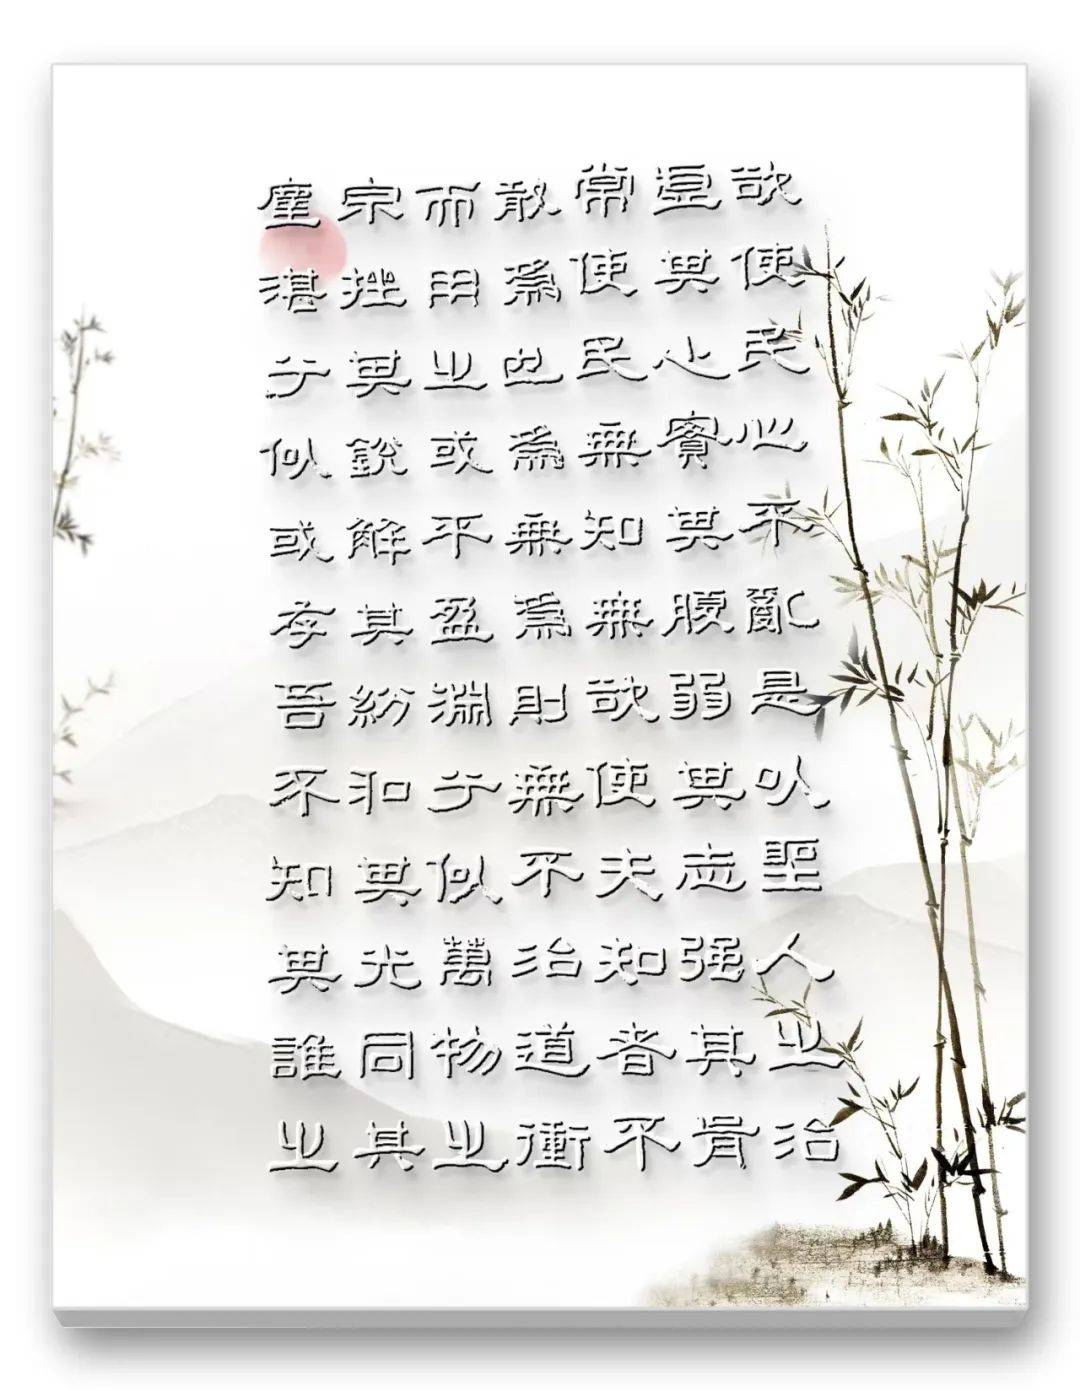 欲使民心不亂是以聖人之治
虛其心實其腹弱其志强其骨
常使民無知無欲使夫知者不
敢爲也爲無爲則無不治道衝
而用之或不盈淵兮似萬物之
宗挫其銳解其紛和其光同其
塵湛兮似或存吾不知其誰之